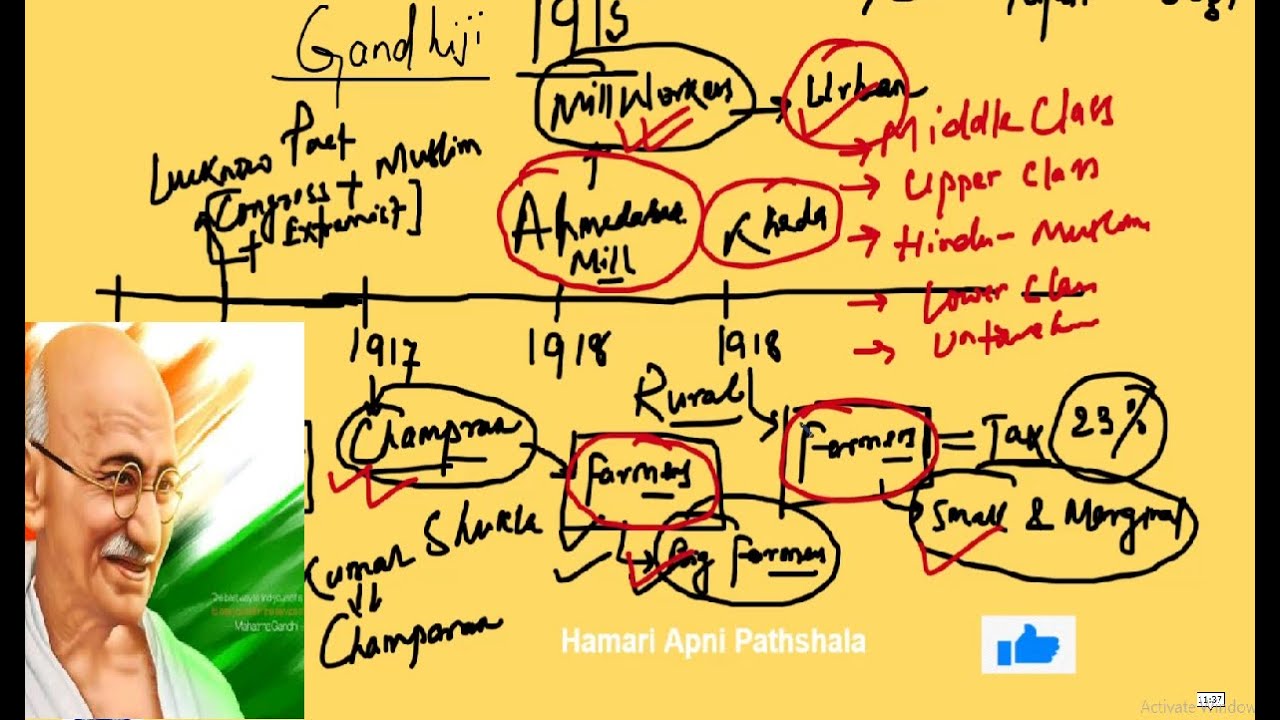 Gandhiji 1915
Mill Workers → Urban
Lucknow Pact
[Congress + Muslim
+ Extremist]
Ahmedabad
Mill
Kheda
→ Middle Class
→ Upper Class
→ Hindu - Muslim
→ Lower Class
→
1917 1918 1918
Champran
Rural
Farmers
Farmers = Tax 23%
Small & Marginal
Farmers
Kumar Shukla
Champaran
Mahatma Gandhi
Hamari Apni Pathshala
11:37
Activate Window